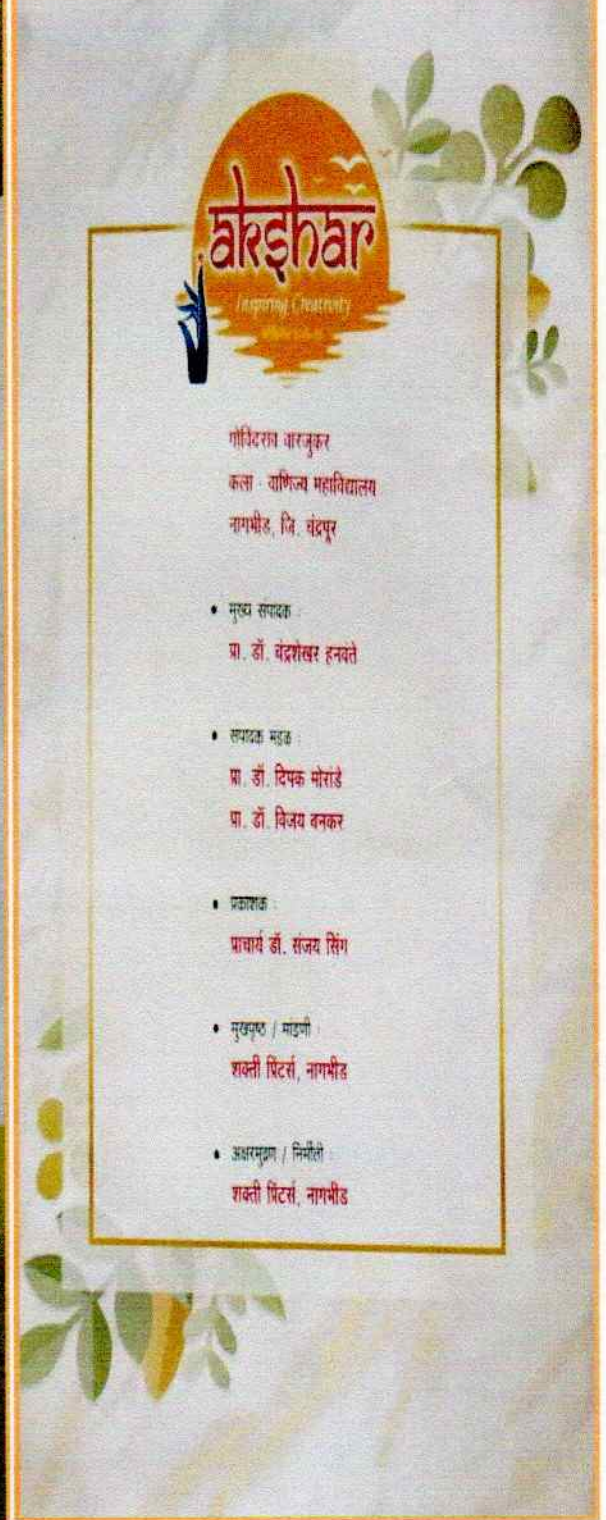 akshar
Inspiring Creativity
गोविंदराव वारजुकर
कला - वाणिज्य महाविद्यालय
नागभीड, जि. चंद्रपूर
• मुख्य संपादक :
प्रा. डॉ. चंद्रशेखर हनवंते
• संपादक मंडळ :
प्रा. डॉ. दिपक मोरांडे
प्रा. डॉ. विजय बनकर
• प्रकाशक :
प्राचार्य डॉ. संजय सिंग
• मुखपृष्ठ / मांडणी :
शक्ती प्रिंटर्स, नागभीड
• अक्षरमुद्रण / निर्मीती :
शक्ती प्रिंटर्स, नागभीड